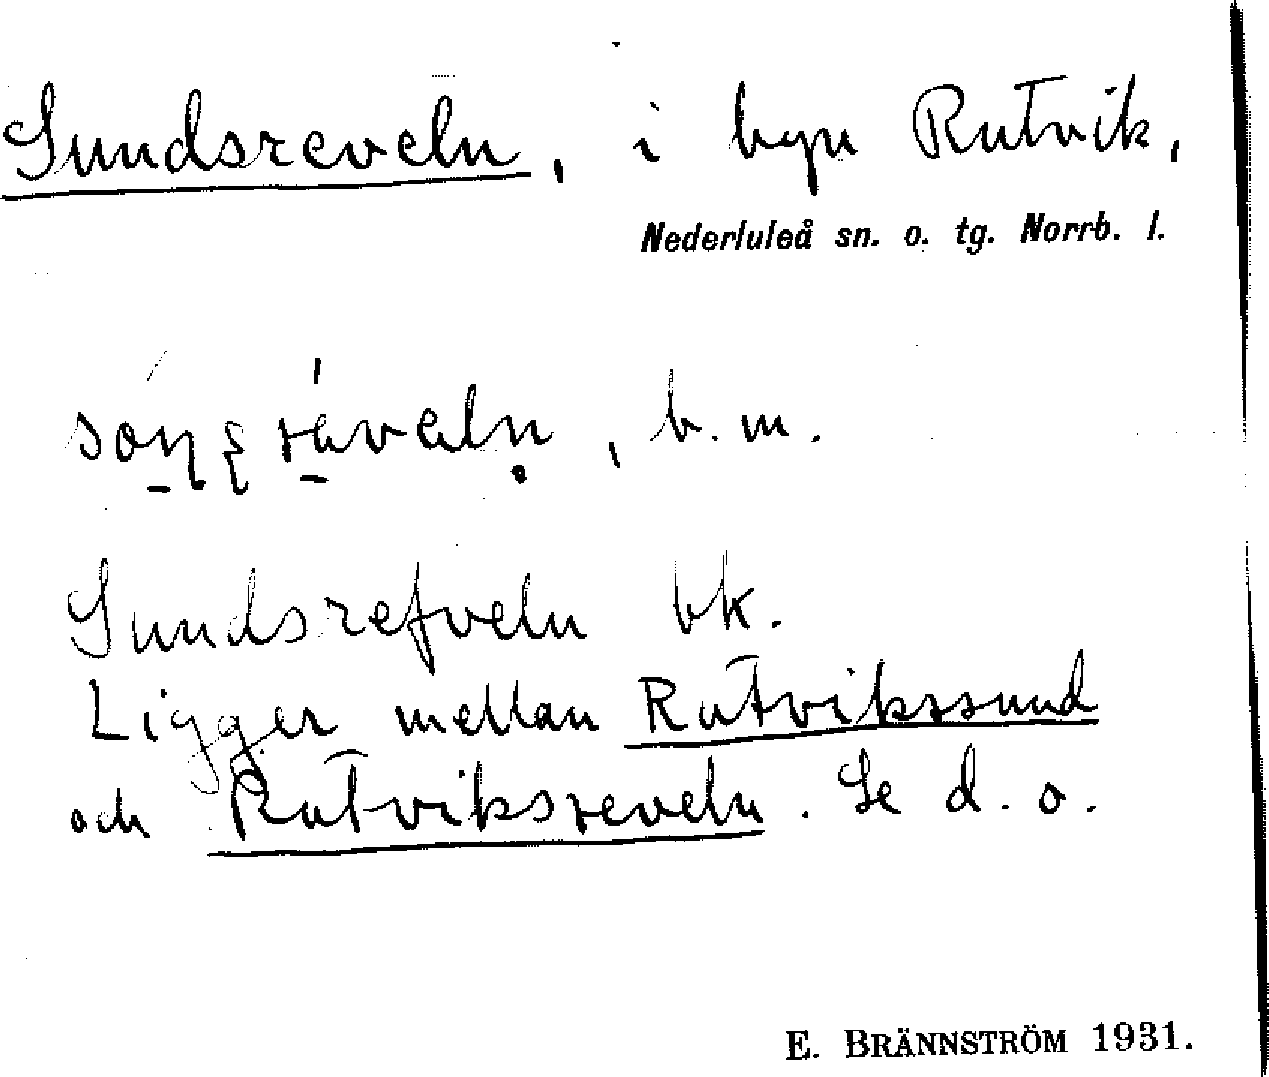 Sundsreveln, i byn Rutvik,
Nederluleå sn. o. tg. Norrb. l.
b. m.
Sundsrefveln bk.
Ligger mellan Rutvikssund
och Rutviksreveln. Se d. o.
E. BRÄNNSTRÖM 1931.